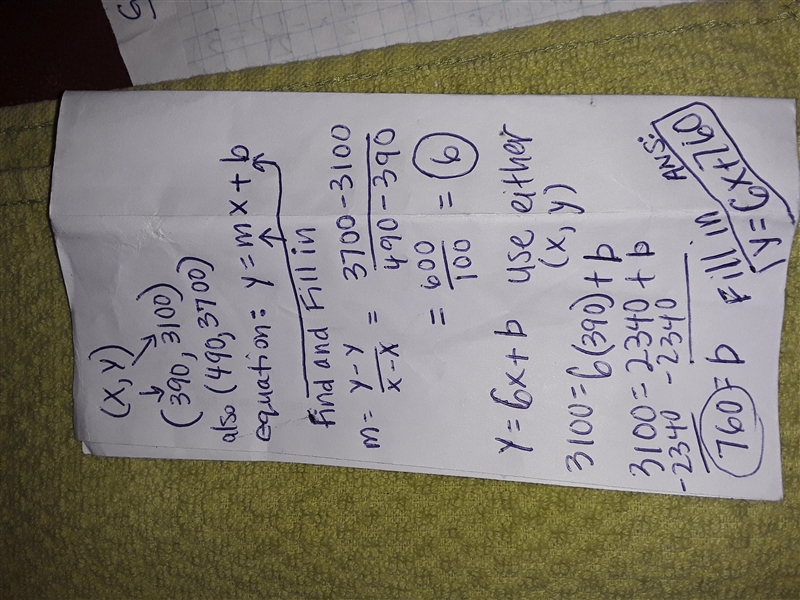 (x, y)
(390, 3100)
also (490, 3700)
equation: y = mx + b
find and Fill in
m = y - y / x - x = 3700 - 3100 / 490 - 390
= 600 / 100 = 6
y = 6x + b use either
(x, y)
3100 = 6(390) + b
3100 = 2340 + b
-2340 -2340
760 = b Fill in
ANS:
y = 6x + 760